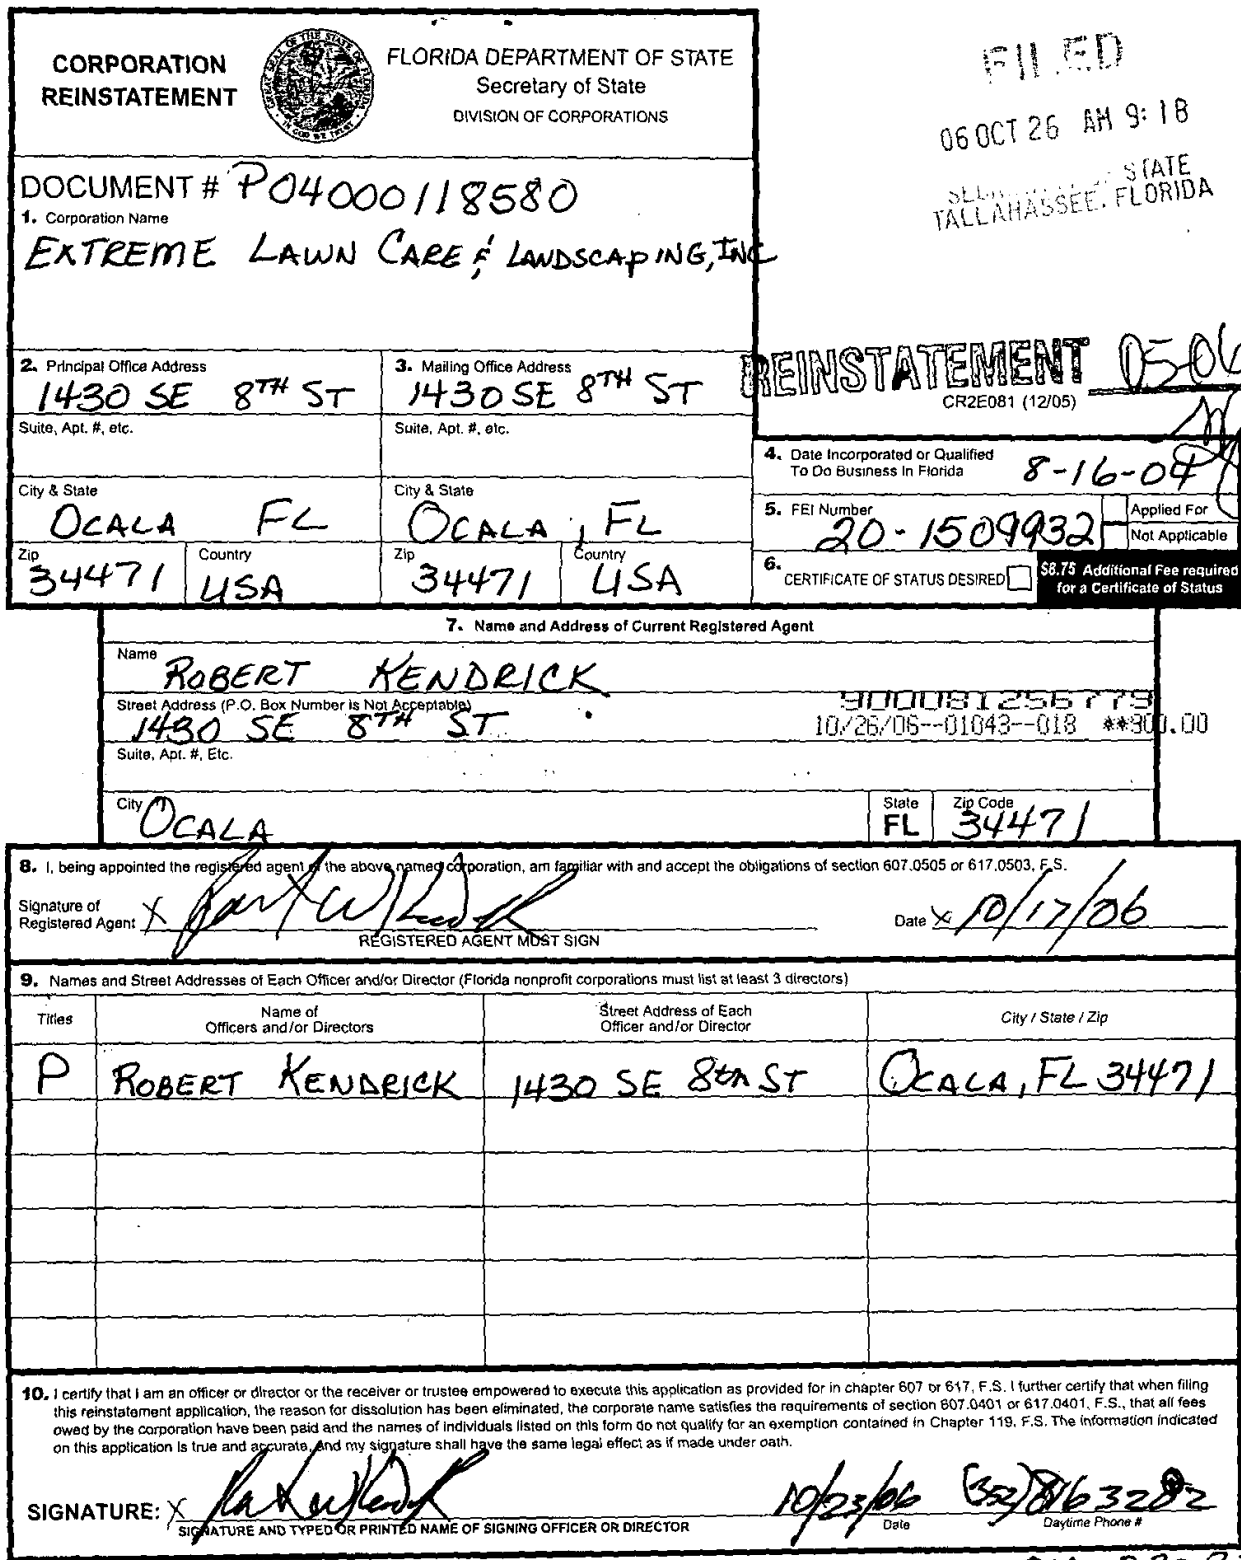 CORPORATION
REINSTATEMENT
FLORIDA DEPARTMENT OF STATE
Secretary of State
DIVISION OF CORPORATIONS
FILED
06 OCT 26 AM 9:18
STATE
TALLAHASSEE, FLORIDA
DOCUMENT # P04000118580
1. Corporation Name
EXTREME LAWN CARE & LANDSCAPING, INC
REINSTATEMENT 05-06
CR2E081 (12/05)
2. Principal Office Address
1430 SE 8TH ST
3. Mailing Office Address
1430 SE 8TH ST
Suite, Apt. #, etc.
Suite, Apt. #, etc.
City & State
OCALA FL
City & State
OCALA, FL
Zip
34471
Country
USA
Zip
34471
Country
USA
4. Date Incorporated or Qualified
To Do Business In Florida
8-16-04
5. FEI Number
20-1509932
Applied For
Not Applicable
6. CERTIFICATE OF STATUS DESIRED
$8.75 Additional Fee required
for a Certificate of Status
7. Name and Address of Current Registered Agent
Name
ROBERT KENDRICK
Street Address (P.O. Box Number is Not Acceptable)
1430 SE 8TH ST
900081256779
10/26/06--01043--018 **300.00
Suite, Apt. #, Etc.
City
OCALA
State
FL
Zip Code
34471
8. I, being appointed the registered agent of the above named corporation, am familiar with and accept the obligations of section 607.0505 or 617.0503, F.S.
Signature of
Registered Agent X
REGISTERED AGENT MUST SIGN
Date X 10/17/06
9. Names and Street Addresses of Each Officer and/or Director (Florida nonprofit corporations must list at least 3 directors)
Titles
Name of
Officers and/or Directors
Street Address of Each
Officer and/or Director
City / State / Zip
P ROBERT KENDRICK 1430 SE 8th ST OCALA, FL 34471
10. I certify that I am an officer or director or the receiver or trustee empowered to execute this application as provided for in chapter 607 or 617, F.S. I further certify that when filing
this reinstatement application, the reason for dissolution has been eliminated, the corporate name satisfies the requirements of section 607.0401 or 617.0401, F.S., that all fees
owed by the corporation have been paid and the names of individuals listed on this form do not qualify for an exemption contained in Chapter 119, F.S. The information indicated
on this application is true and accurate, and my signature shall have the same legal effect as if made under oath.
SIGNATURE: X
10/23/06 (352) 8163282
SIGNATURE AND TYPED OR PRINTED NAME OF SIGNING OFFICER OR DIRECTOR
Date
Daytime Phone #